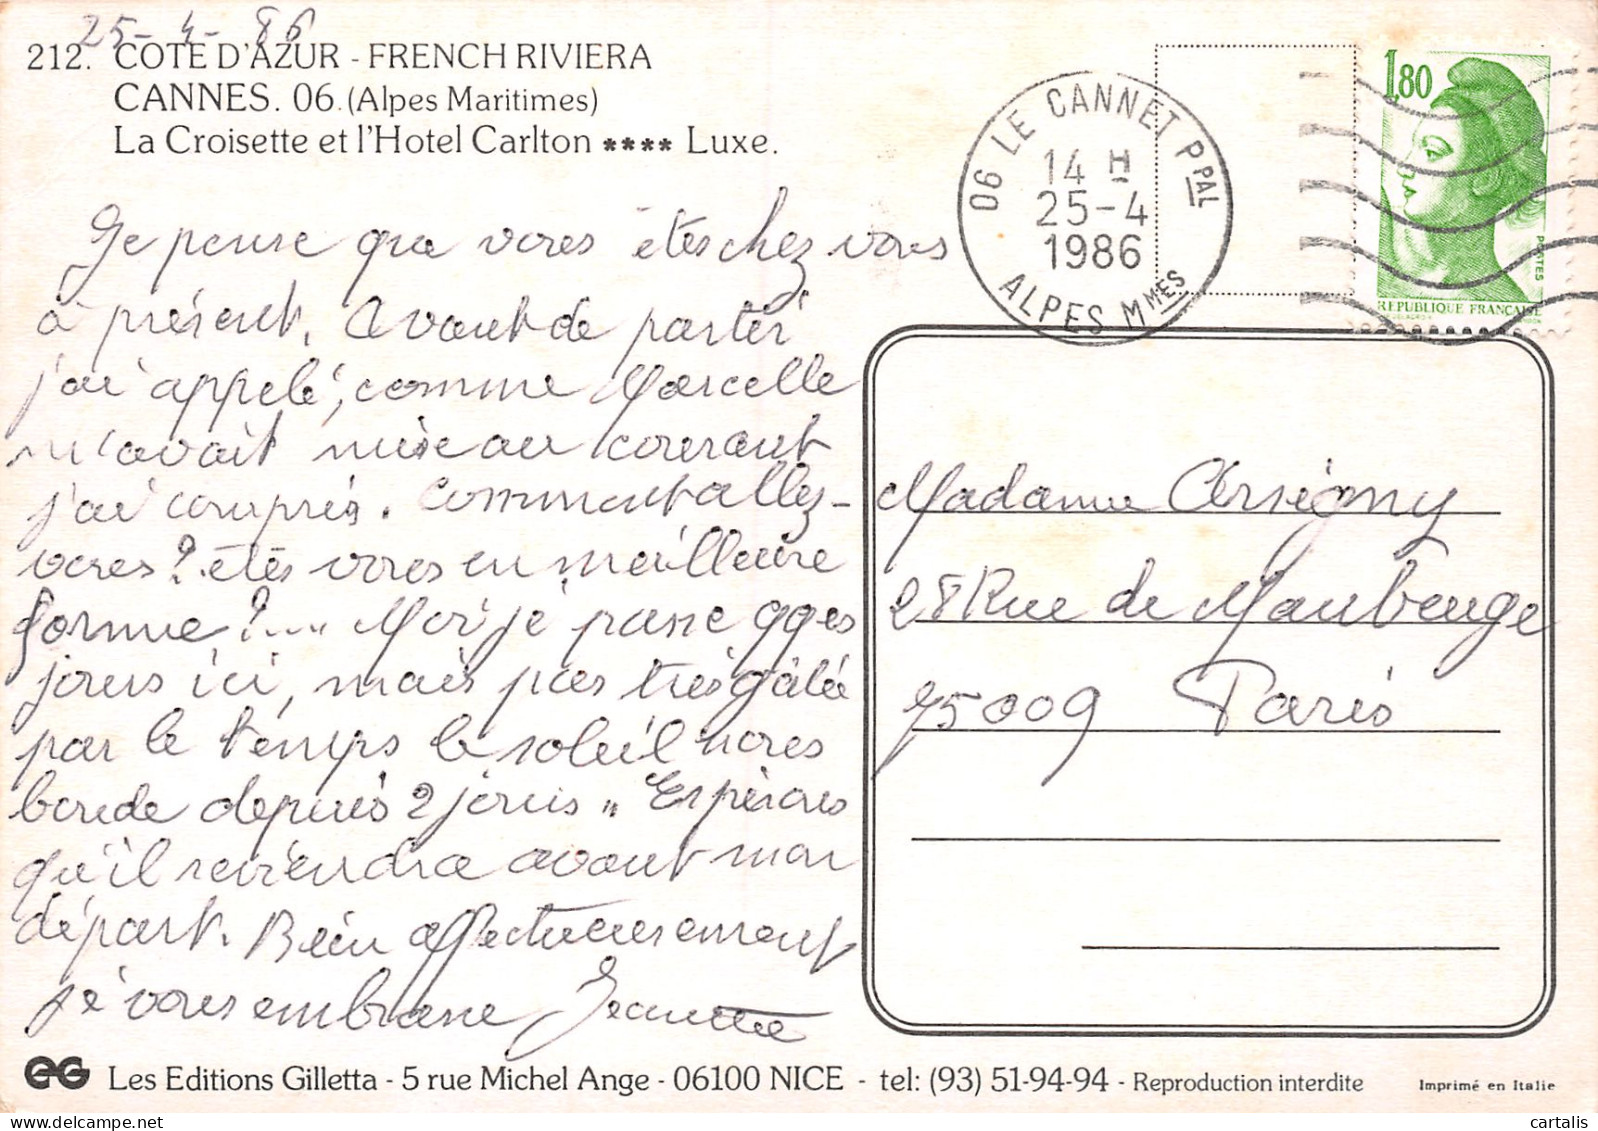 25-4-86
212. COTE D'AZUR - FRENCH RIVIERA
CANNES. 06. (Alpes Maritimes)
La Croisette et l'Hotel Carlton **** Luxe.
06 LE CANNET PPAL
14 H
25-4
1986
ALPES MMES
1,80
POSTES
REPUBLIQUE FRANÇAISE
Je pense que vous êtes chez vous
à présent. Avant de partir
j'ai appelé, comme Marcelle
m'avait mise au courant
j'ai compris. Comment allez-
vous ? êtes vous en meilleure
forme ?.... Moi je passe qques
jours ici, mais pas très gâtée
par le temps le soleil nous
boude depuis 2 jours.. Espérons
qu'il reviendra avant mon
départ. Bien affectueusement
je vous embrasse Jeannette
Madame Arsigny
28 Rue de Maubeuge
75009 Paris
EG Les Editions Gilletta - 5 rue Michel Ange - 06100 NICE - tel: (93) 51-94-94 - Reproduction interdite
Imprimé en Italie
cartalis